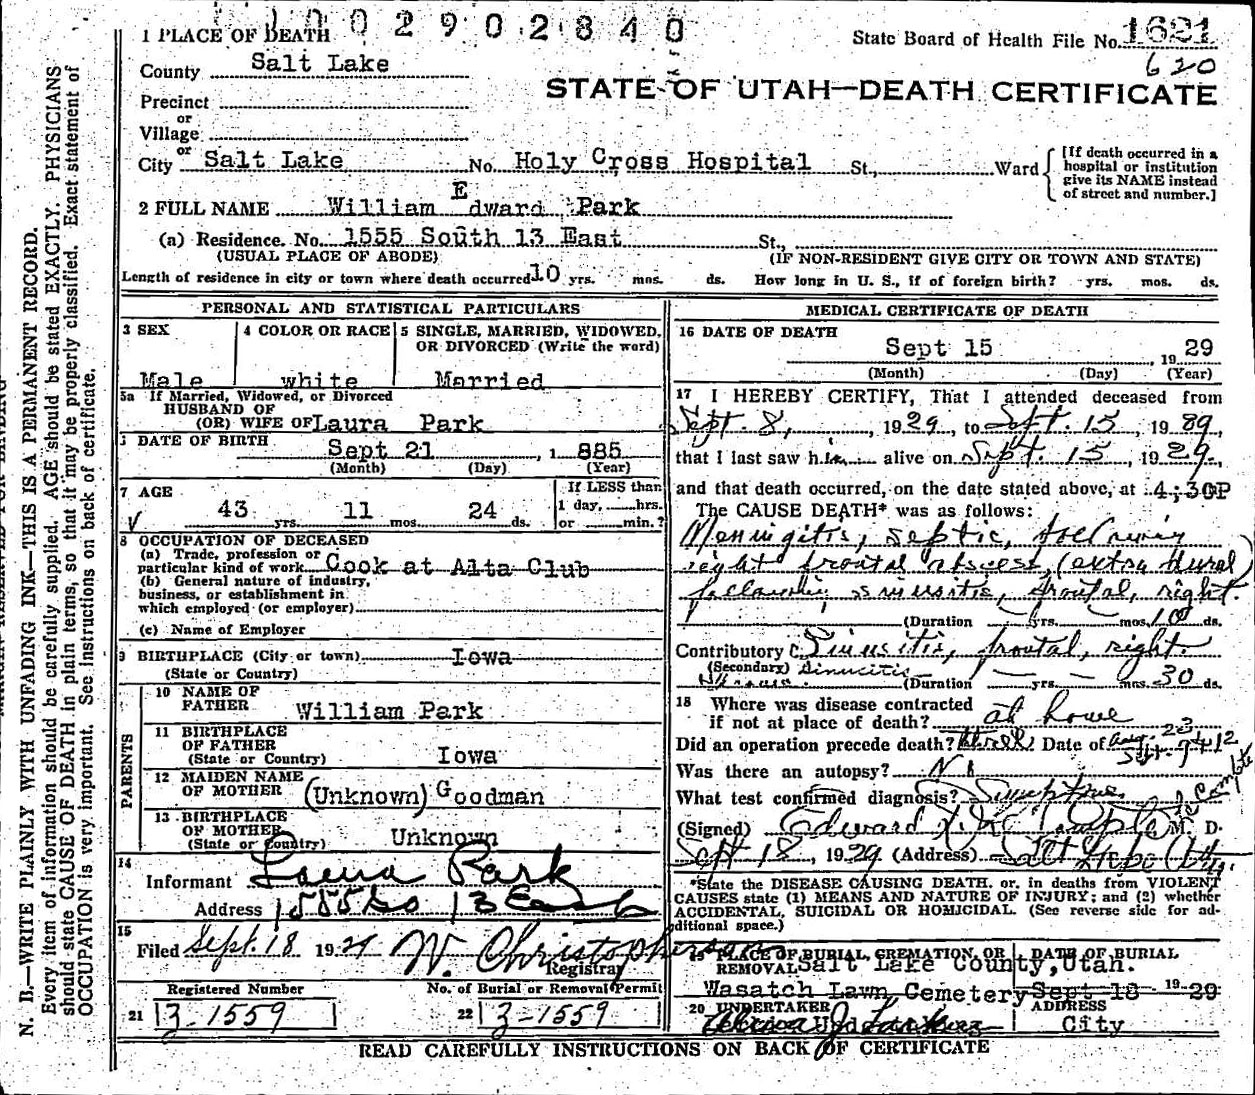 1002902840
1 PLACE OF DEATH
State Board of Health File No. 1621
620
County Salt Lake
STATE OF UTAH—DEATH CERTIFICATE
Precinct
or
Village
or
City Salt Lake No. Holy Cross Hospital St., Ward
[If death occurred in a hospital or institution give its NAME instead of street and number.]
2 FULL NAME William Edward Park
(a) Residence. No. 1555 South 13 East St.,
(USUAL PLACE OF ABODE) (IF NON-RESIDENT GIVE CITY OR TOWN AND STATE)
Length of residence in city or town where death occurred 10 yrs. mos. ds. How long in U. S., if of foreign birth? yrs. mos. ds.
PERSONAL AND STATISTICAL PARTICULARS
3 SEX
Male
4 COLOR OR RACE
white
5 SINGLE, MARRIED, WIDOWED,
OR DIVORCED (Write the word)
Married
5a If Married, Widowed, or Divorced
HUSBAND OF
(OR) WIFE OF Laura Park
DATE OF BIRTH Sept 21, 1 885
(Month) (Day) (Year)
7 AGE
43 yrs. 11 mos. 24 ds.
If LESS than
1 day, hrs.
or min.?
8 OCCUPATION OF DECEASED
(a) Trade, profession or
particular kind of work Cook at Alta Club
(b) General nature of industry,
business, or establishment in
which employed (or employer)
(c) Name of Employer
9 BIRTHPLACE (City or town) Iowa
(State or Country)
PARENTS
10 NAME OF
FATHER William Park
11 BIRTHPLACE
OF FATHER
(State or Country) Iowa
12 MAIDEN NAME
OF MOTHER (Unknown) Goodman
13 BIRTHPLACE
OF MOTHER
(State or Country) Unknown
14
Informant Laura Park
Address 1555 So 13 East
15
Filed Sept. 18 1929 W. Christopherson
Registrar
Registered Number No. of Burial or Removal Permit
21 3-1559 22 3-1559
MEDICAL CERTIFICATE OF DEATH
16 DATE OF DEATH
Sept 15, 19 29
(Month) (Day) (Year)
17 I HEREBY CERTIFY, That I attended deceased from
Sept. 8, 1929, to Sept. 15, 1989
that I last saw him alive on Sept. 15, 1929,
and that death occurred, on the date stated above, at 4:30P
The CAUSE DEATH* was as follows:
Meningitis, septic, following
right frontal abscess, (extra dural)
following sinusitis, frontal, right.
(Duration yrs. mos. 10 ds.
Contributory Sinusitis, frontal, right.
(Secondary) Sinucitis
(Duration yrs. mos. 30 ds.
18 Where was disease contracted
if not at place of death? at home
Did an operation precede death? three Date of Aug. 23
Sept. 9 + 12
Was there an autopsy? No
What test confirmed diagnosis? Symptoms complete
(Signed) Edward M. D.
Sept 18, 1929 (Address) Salt Lake City
*State the DISEASE CAUSING DEATH, or, in deaths from VIOLENT
CAUSES state (1) MEANS AND NATURE OF INJURY; and (2) whether
ACCIDENTAL, SUICIDAL OR HOMICIDAL. (See reverse side for additional space.)
19 PLACE OF BURIAL, CREMATION, OR
REMOVAL Salt Lake County, Utah.
Wasatch Lawn Cemetery
DATE OF BURIAL
Sept 18 19 29
20 UNDERTAKER
ADDRESS
City
READ CAREFULLY INSTRUCTIONS ON BACK OF CERTIFICATE
N. B.—WRITE PLAINLY WITH UNFADING INK—THIS IS A PERMANENT RECORD.
Every item of information should be carefully supplied. AGE should be stated EXACTLY. PHYSICIANS
should state CAUSE OF DEATH in plain terms, so that it may be properly classified. Exact statement of
OCCUPATION is very important. See instructions on back of certificate.